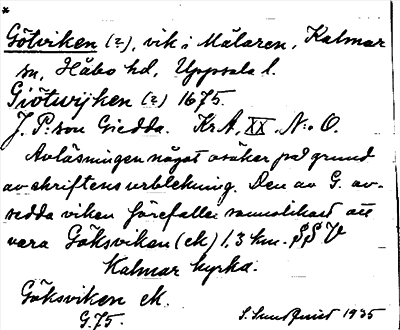 *
Götviken (?), vik i Mälaren, Kalmar
sn, Håbo hd, Uppsala l.
Giötwijken (?) 1675.
J. P:son Giedda. Kr.A, XX, N:o 0.
Avläsningen något osäker på grund
av skriftens urblekning. Den av G. av-
sedda viken förefaller sannolikast att
vara Göksviken (ek) 1.3 km. SSV
Kalmar kyrka.
Göksviken ek.
G.75.
S. Sundquist 1935